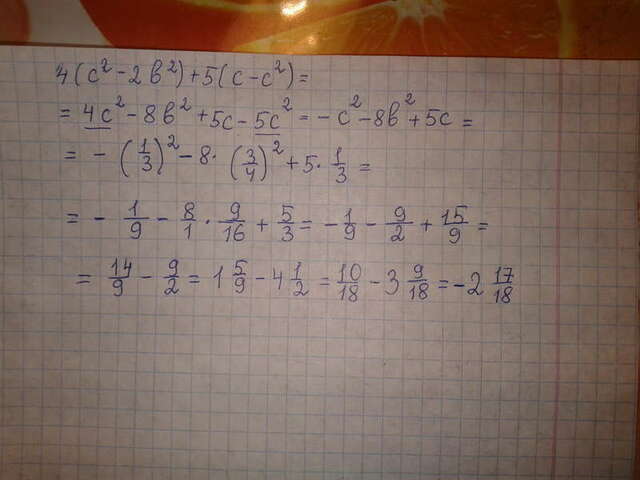 4(c² - 2в²) + 5(c - c²) =
= 4c² - 8в² + 5c - 5c² = - c² - 8в² + 5c =
= - (1/3)² - 8 · (3/4)² + 5 · 1/3 =
= - 1/9 - 8/1 · 9/16 + 5/3 = - 1/9 - 9/2 + 15/9 =
= 14/9 - 9/2 = 1 5/9 - 4 1/2 = 10/18 - 3 9/18 = - 2 17/18